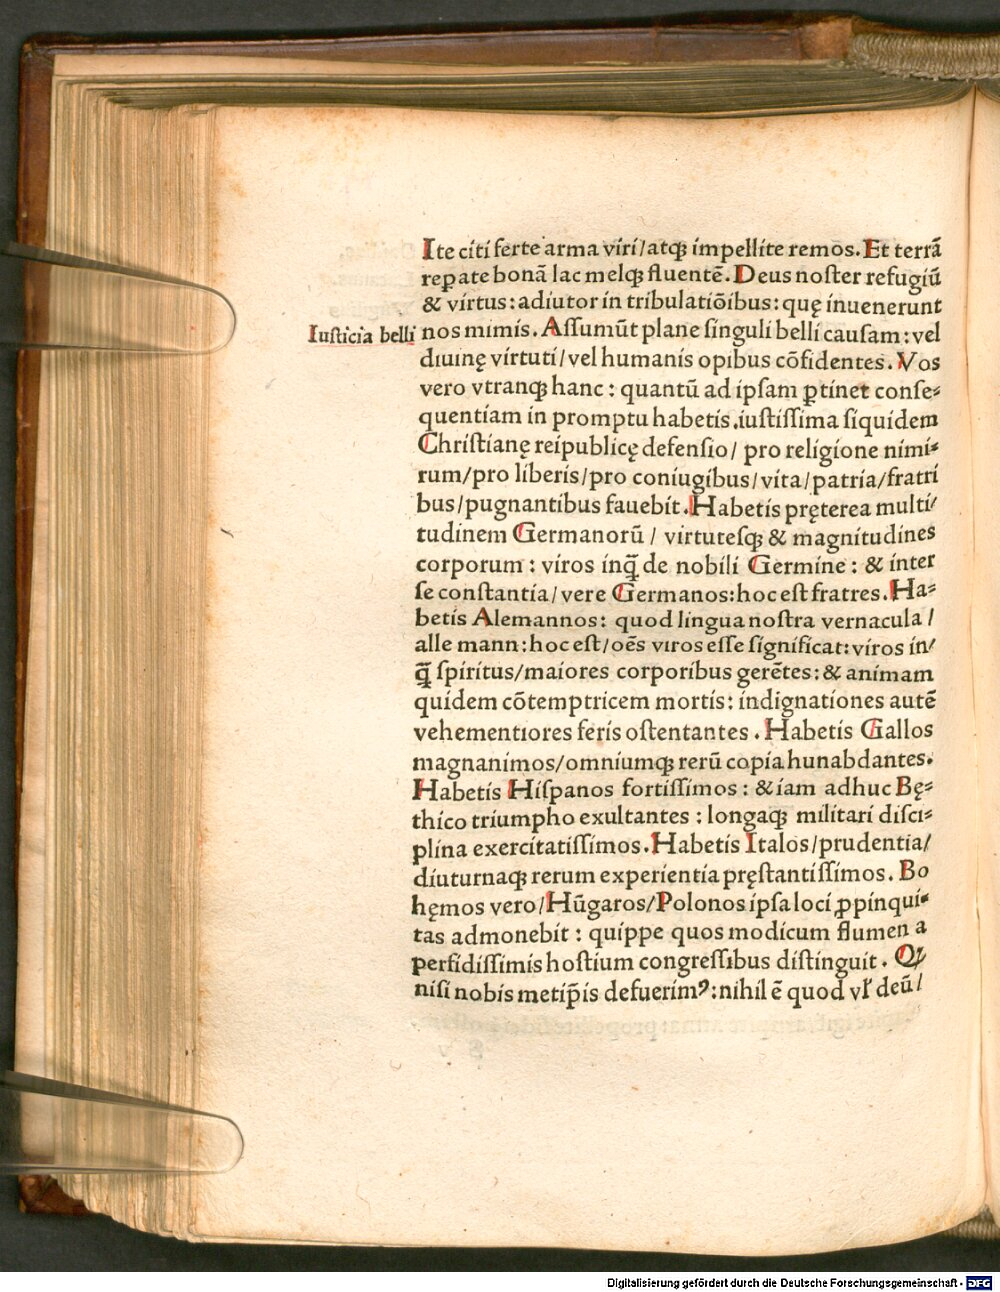 Ite citi ferte arma viri/atqꝫ impellite remos. Et terrā
repate bonā lac melqꝫ fluentē. Deus noſter refugiū
& virtus: adiutor in tribulatiōibus: quę inuenerunt
Iuſticia belli
nos mimis. Aſſumūt plane ſinguli belli cauſam: vel
diuinę virtuti/vel humanis opibus cōfidentes. Vos
vero vtranqꝫ hanc: quantū ad ipſam ꝑtinet conſe⸗
quentiam in promptu habetis.iuſtiſſima ſiquidem
Chriſtianę reipublicę defenſio/ pro religione nimi⸗
rum/pro liberis/pro coniugibus/vita/patria/fratri
bus/pugnantibus fauebit. Habetis pręterea multi/
tudinem Germanorū/ virtuteſqꝫ & magnitudines
corporum: viros inq̄ de nobili Germine: & inter
ſe conſtantia/vere Germanos: hoc eſt fratres. Ha⸗
betis Alemannos: quod lingua noſtra vernacula/
alle mann: hoc eſt/oēs viros eſſe ſignificat: viros in/
q̄ ſpiritus/maiores corporibus gerētes: & animam
quidem cōtemptricem mortis: indignationes autē
vehementiores feris oſtentantes. Habetis Gallos
magnanimos/omniumqꝫ rerū copia hunabdantes.
Habetis Hiſpanos fortiſſimos: & iam adhuc Bę⸗
thico triumpho exultantes: longaqꝫ militari diſci⸗
plina exercitatiſſimos. Habetis Italos/prudentia/
diuturnaqꝫ rerum experientia pręſtantiſſimos. Bo
hęmos vero/Hūgaros/Polonos ipſa loci ꝓpinqui⸗
tas admonebit: quippe quos modicum flumen a
perfidiſſimis hoſtium congreſſibus diſtinguit. Qꝫ
niſi nobis metip̄is defuerimꝰ: nihil ē quod vl' deū/
Digitalisierung gefördert durch die Deutsche Forschungsgemeinschaft - DFG